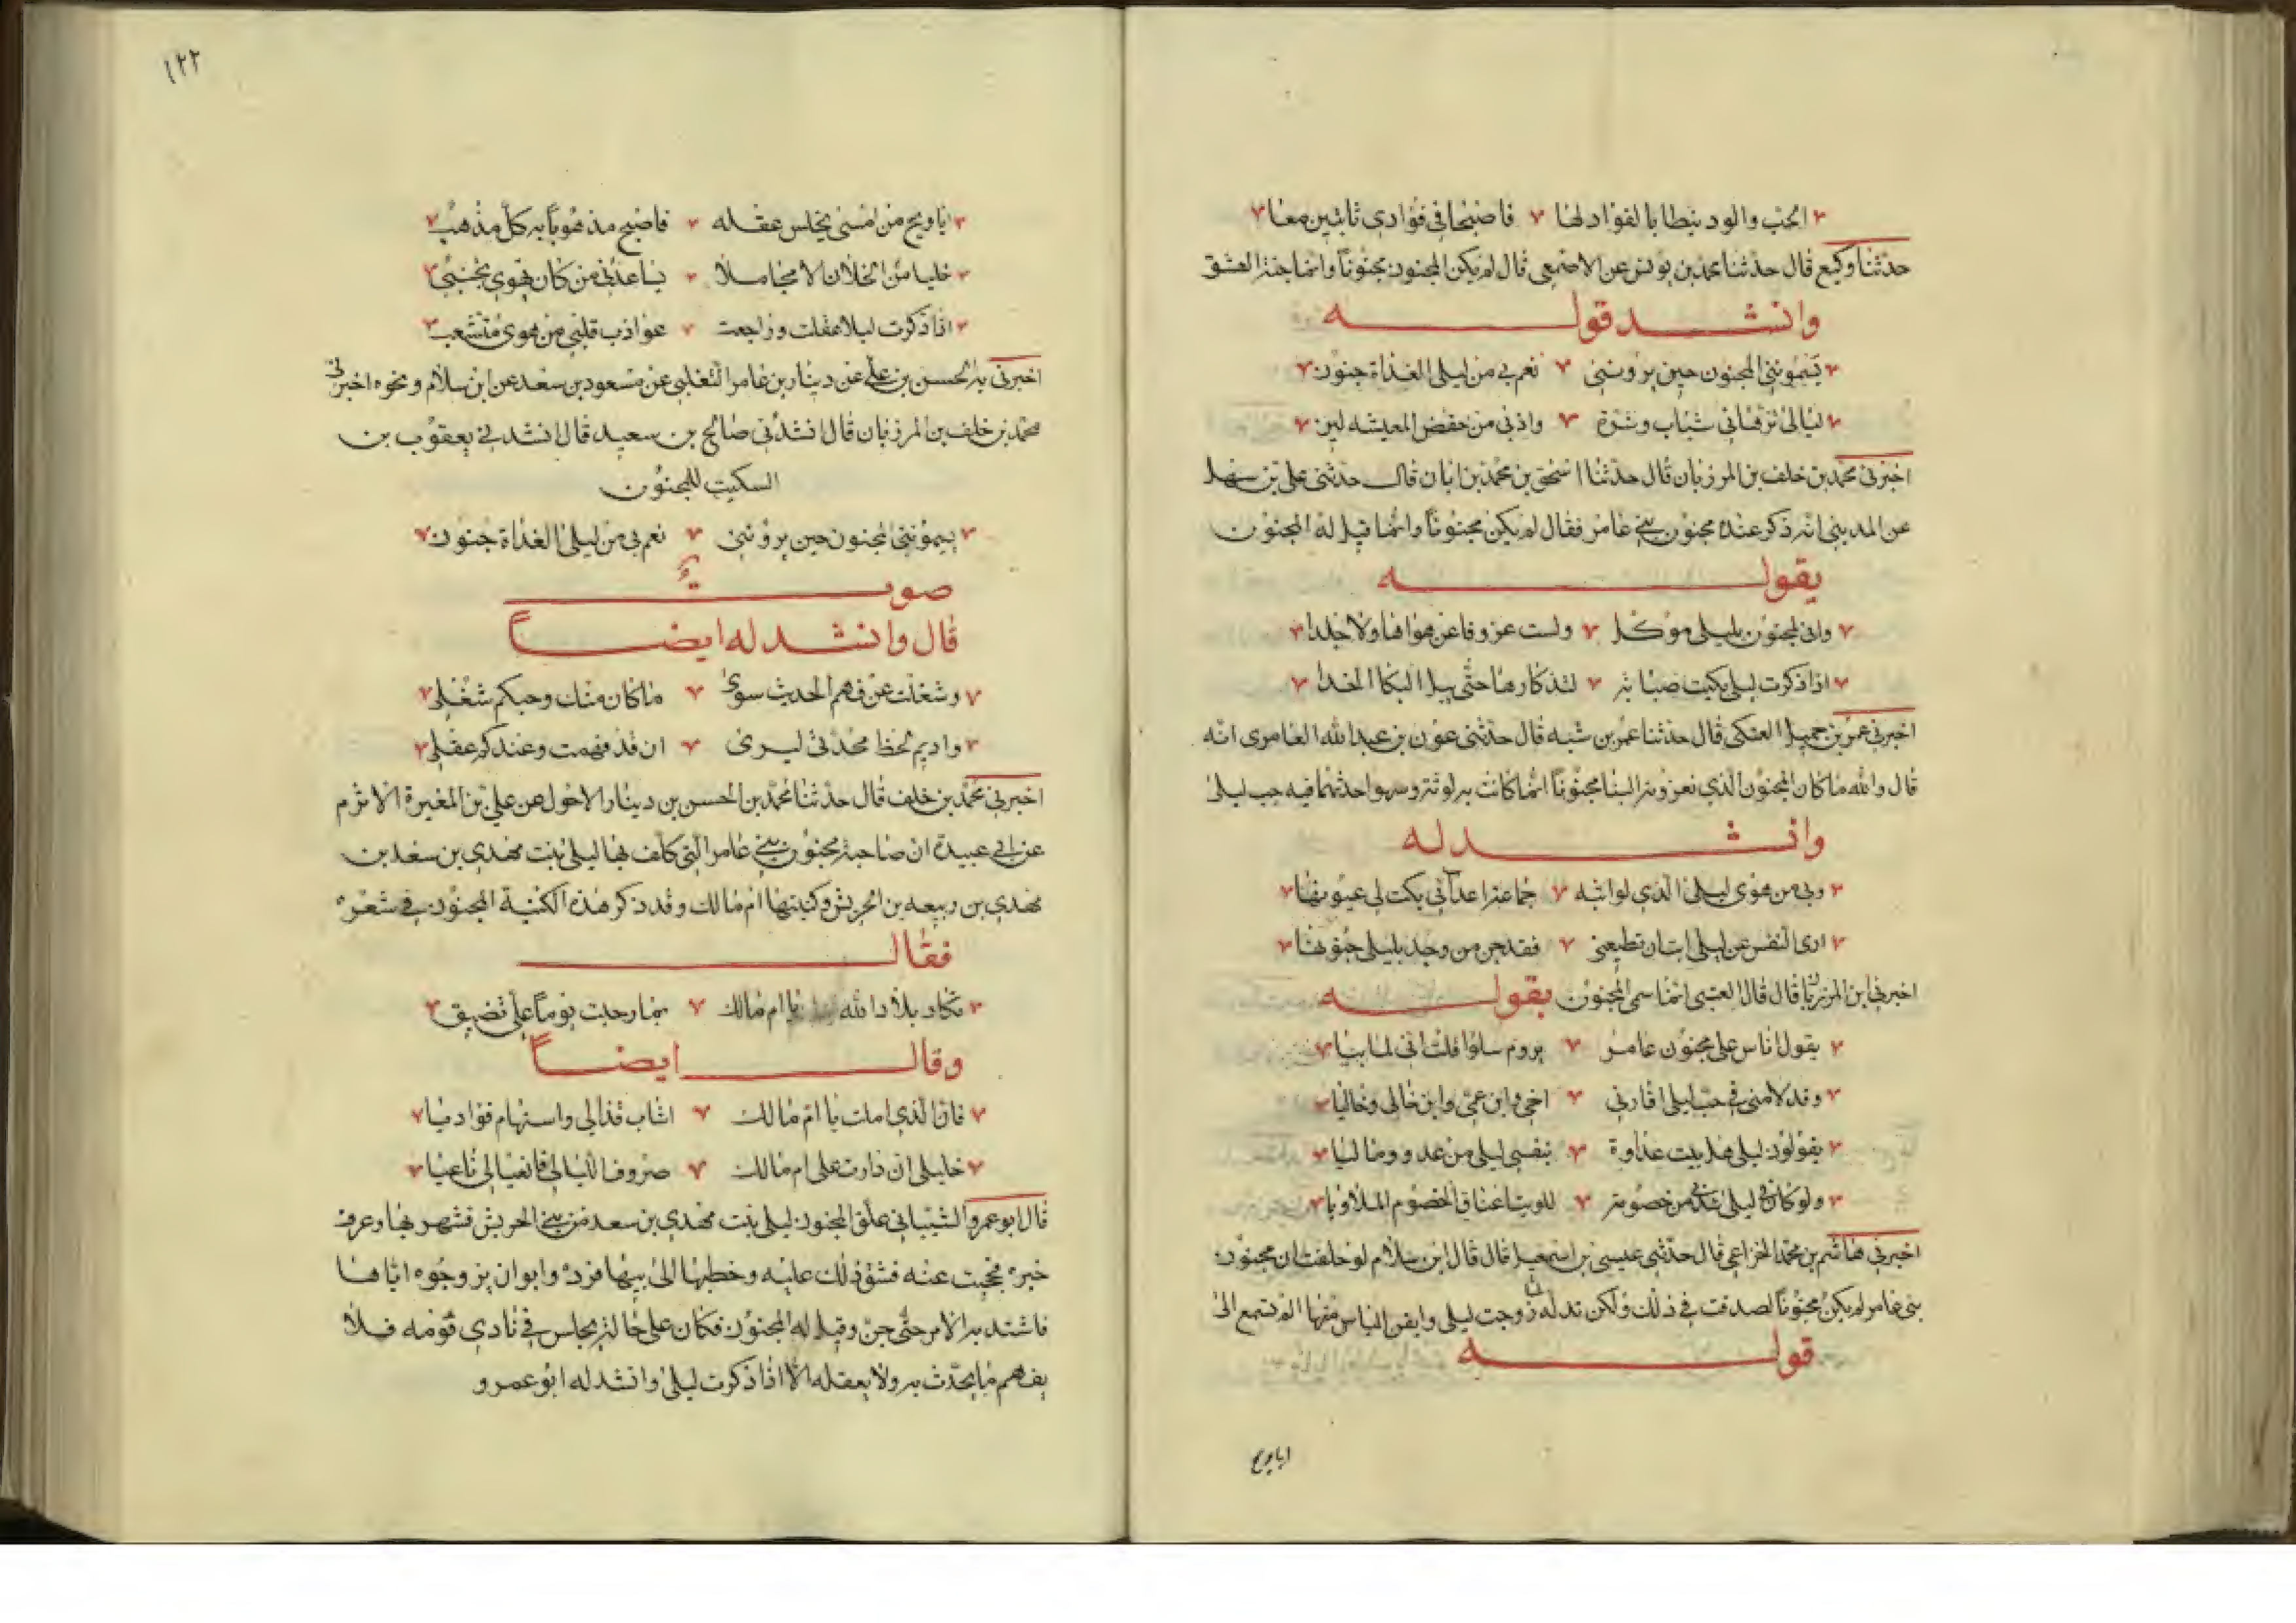 الحب والود نيطا بالفواد لها فاصبحا في فوادي ثابتين معا
حدثنا وكيع قال حدثنا محمد بن يونس عن الاصمعي قال لم يكن المجنون مجنوناً وانما جننه العشق
وانشد قوله
يسموننى المجنون حين يروننى نعم بي من ليلى الغداة جنون
ليالى تزهانى شباب وشرة واذ بى من خفض المعيشه لين
اخبرنى محمد بن خلف بن المرزبان قال حدثنا اسحق بن محمد بن ابان قال حدثنى على بن سهل
عن المدينى انه ذكر عنده مجنون بنى عامر فقال لم يكن مجنوناً وانما قيل له المجنون
بقوله
وانى لمجنون بليلى موكل ولست عزوفا عن هواها ولا جلدا
اذا ذكرت ليلى بكيت صبابة لتذكارها حتى يبل البكا الخدا
اخبرنى عمر بن جميل العتكى قال حدثنا عمر بن شبه قال حدثنى عون بن عبد الله العامرى انه
قال والله ما كان المجنون الذي تعزونه الينا مجنوناً انما كانت به لوثة وسهو احدثهما فيه حب ليلى
وانشد له
وبى من هوى ليلى الذي لو ابثه جماعة اعدائى بكت لى عيونها
ارى النفس عن ليلى ابت ان تطيعنى فقد جن من وجد بليلى جنونها
اخبرنى ابن المرزبان قال قال العتبى انما سمى المجنون بقوله
يقول اناس عل مجنون عامر يروم سلوا قلت انى لما بيا
وقد لامنى في حب ليلى اقاربى اخى وابن عمى وابن خالى وخاليا
يقولون ليلى اهل بيت عداوة بنفسى ليلى من عدو وماليا
ولو كان في ليلى شذى من خصومة للويت اعناق الخصوم الملاويا
اخبرنى هاشم بن محمد الخزاعي قال حدثنى عيسى بن اسمعيل قال قال ابن سلام لو حلفت ان مجنون
بنى عامر لم يكن مجنوناً لصدقت في ذلك ولكن تدله ان زوجت ليلى وايقن الياس منها الم تسمع الى
قوله
ايا ويح
١٢٢
ايا ويح من امسى يخلس عقله فاصبح مذهوباً به كل مذهب
خليا من الخلان الا مجاملا يساعدنى من كان يهوى تجنبى
اذا ذكرت ليلى عقلت وراجعت عوازب قلبى من هوى متشعب
اخبرنى به الحسن بن على عن دينار بن عامر التغلبي عن مسعود بن سعد عن ابن سلام ونحوه اخبرنى
محمد بن خلف بن المرزبان قال انشدنى صالح بن سعيد قال انشدنى يعقوب بن
السكيت للمجنون
يسموننى المجنون حين يروننى نعم بى من ليلى الغداة جنون
صوت
قال وانشد له ايضاً
وشغلت عن فهم الحديث سوى ما كان منك وحبكم شغلى
واديم لحظ محدثى ليرى ان قد فهمت وعندكم عقلى
اخبرنى محمد بن خلف قال حدثنا محمد بن الحسن بن دينار الاحول عن على بن المغيرة الاثرم
عن ابي عبيدة ان صاحبة مجنون بنى عامر التى كلف بها ليلى بنت مهدي بن سعد بن
مهدي بن ربيعه بن الحريش وكنيتها ام مالك وقد ذكر هذه الكنية المجنون في شعره
فقال
تكاد بلاد الله يا ام مالك بما رحبت يوماً على تضيق
وقال ايضاً
فان الذي املت يا ام مالك اشاب قذالى واستهام فواديا
خليلى ان دارت على ام مالك صروف الليالى فانعيا لى ناعيا
قال ابو عمرو الشيبانى علق المجنون ليلى بنت مهدي بن سعد من بنى الحريش فشهر بها وعرف
خبره فحجبت عنه فشق ذلك عليه وخطبها الى ابيها فرده وابوا ان يزوجوه اياها
فاشتد به الامر حتى جن وقيل له المجنون فكان على حاله يجلس في نادي قومه فلا
يفهم ما يحدث به ولا يعقله الا اذا ذكرت ليلى وانشد له ابو عمرو